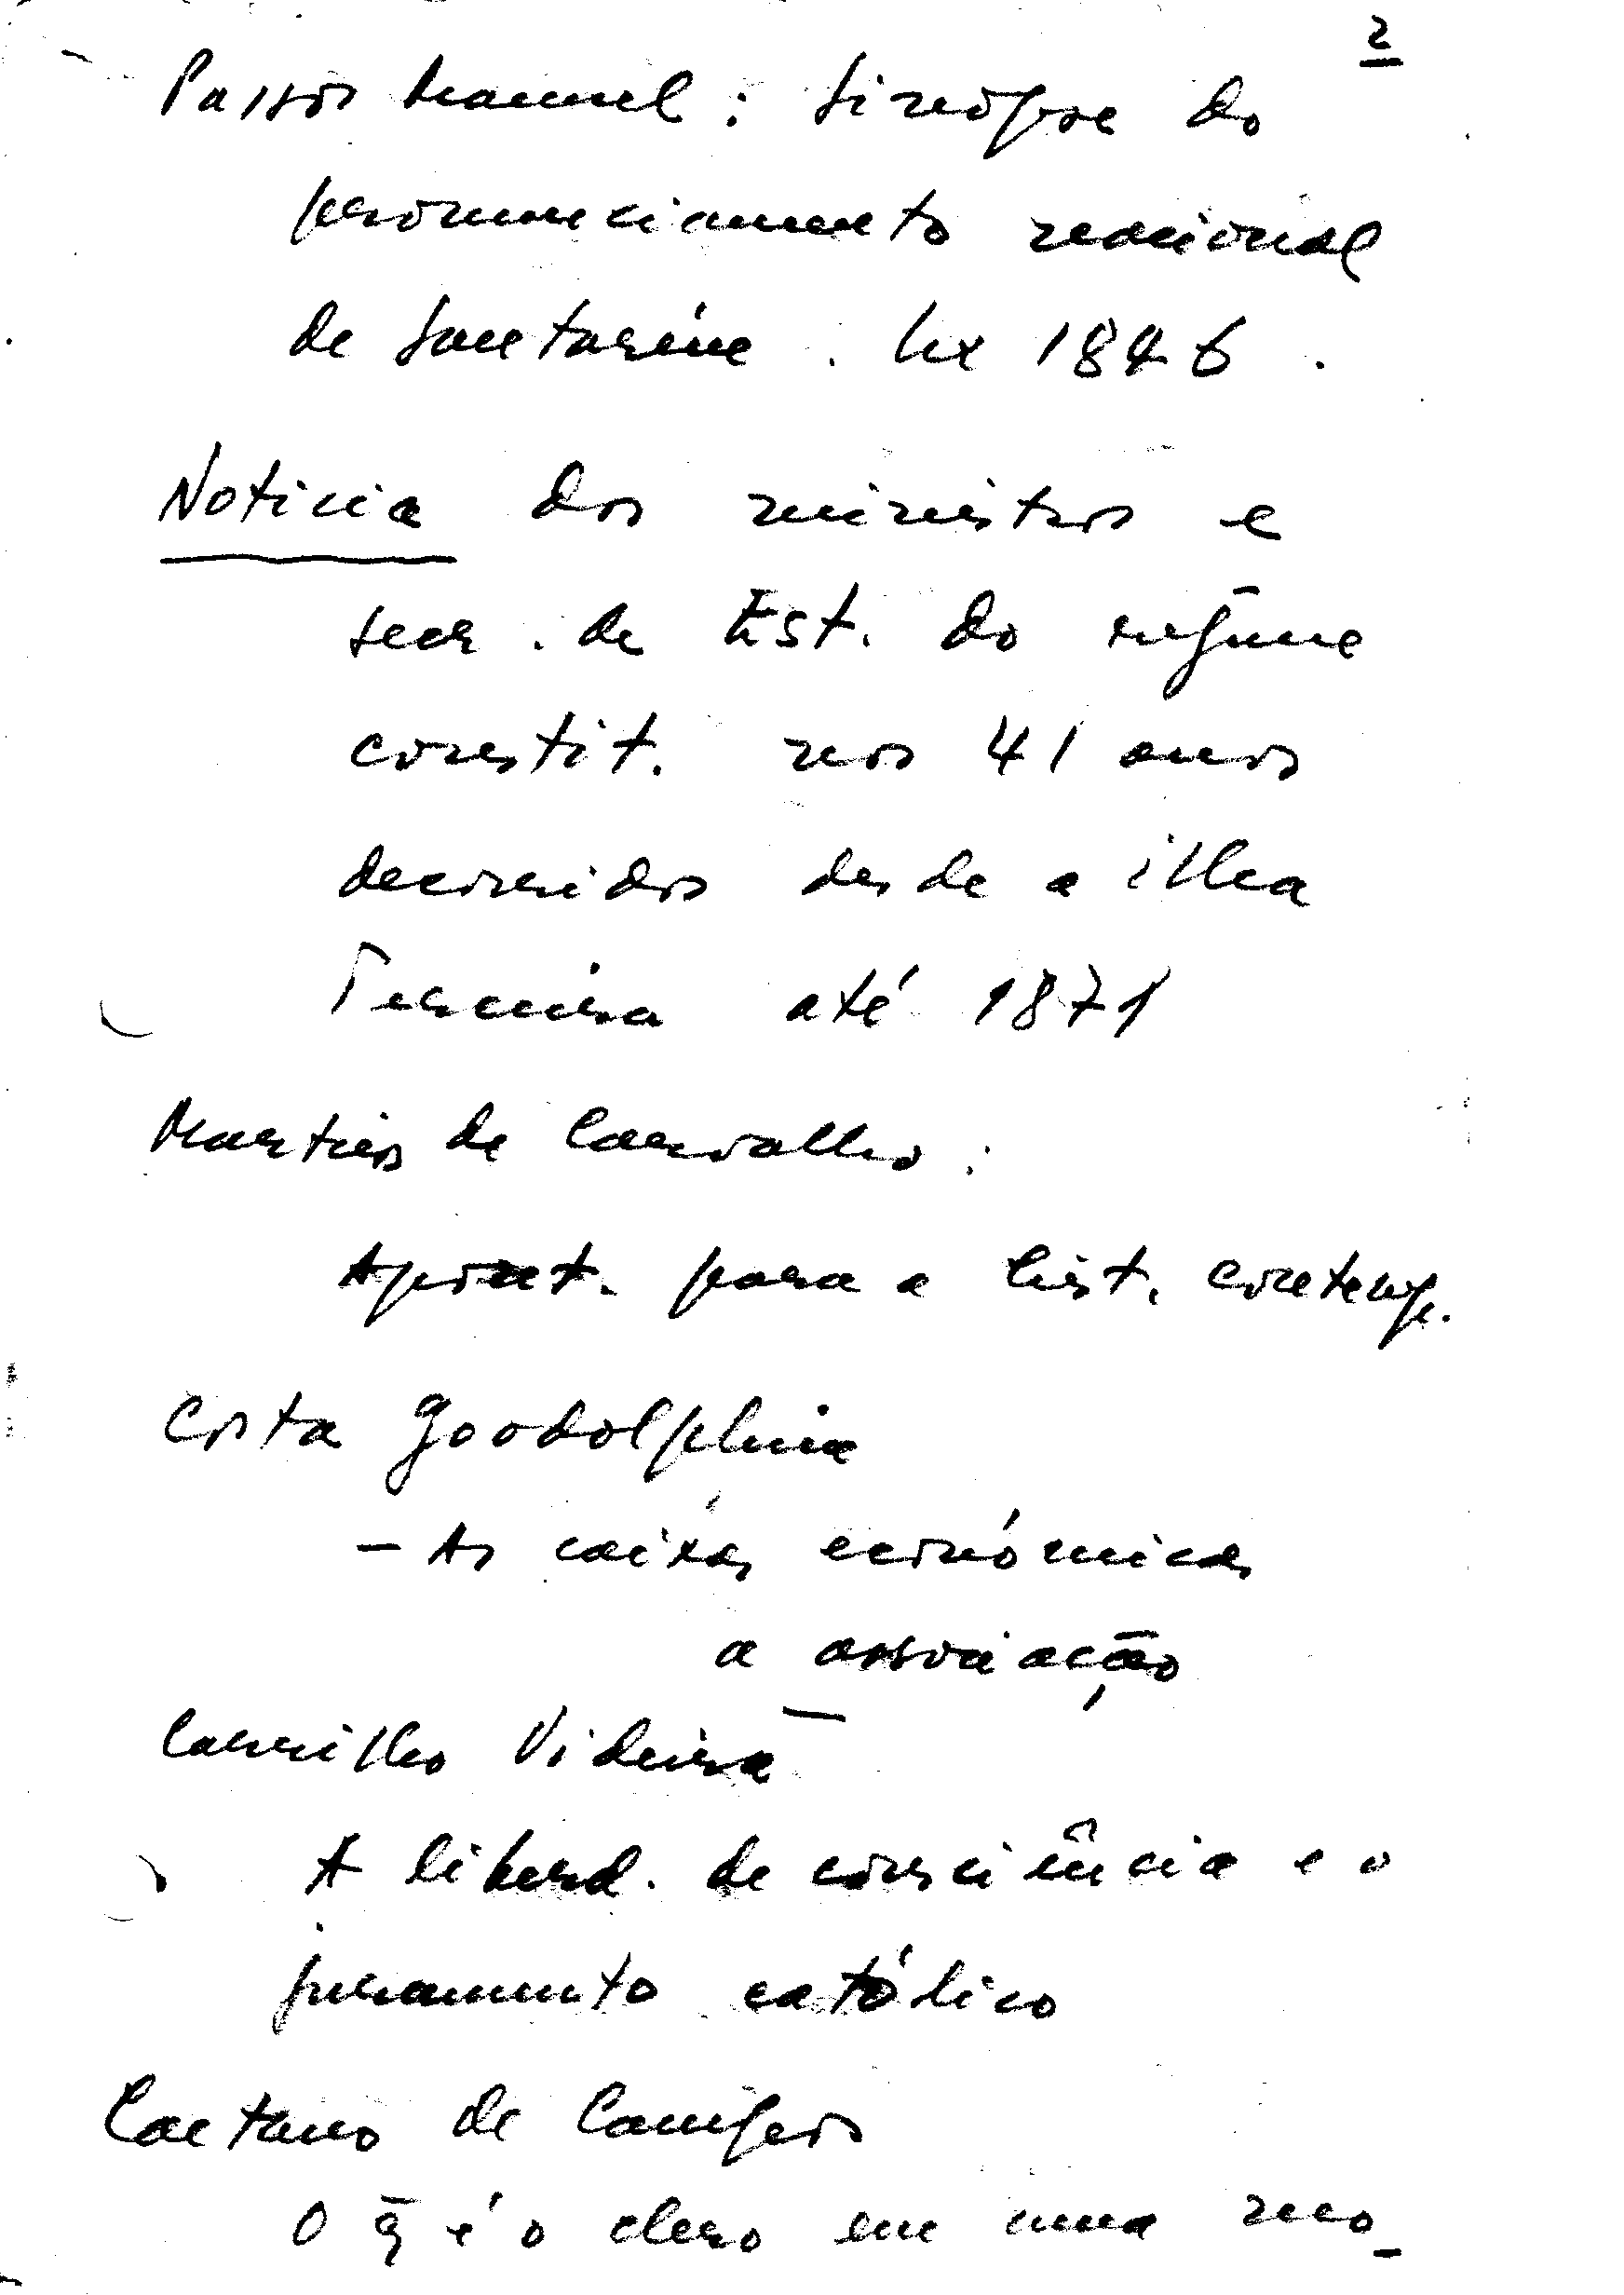 2
Passos Manuel : Sinopse do
pronunciamento nacional
de Santarém . Lx 1846 .
Noticia dos ministros e
secr. de Est. do regíme
constit. nos 41 anos
decorridos desde a ilha
Terceira até 1871
Martins de Carvalho :
Apont. para a hist. contemp.
Costa Goodolphim
- As caixas económicas
a associação
Carrilho Videira
A liberd. de consciência e o
juramento católico
Caetano de Campos
O q̄ é o clero em uma mo_